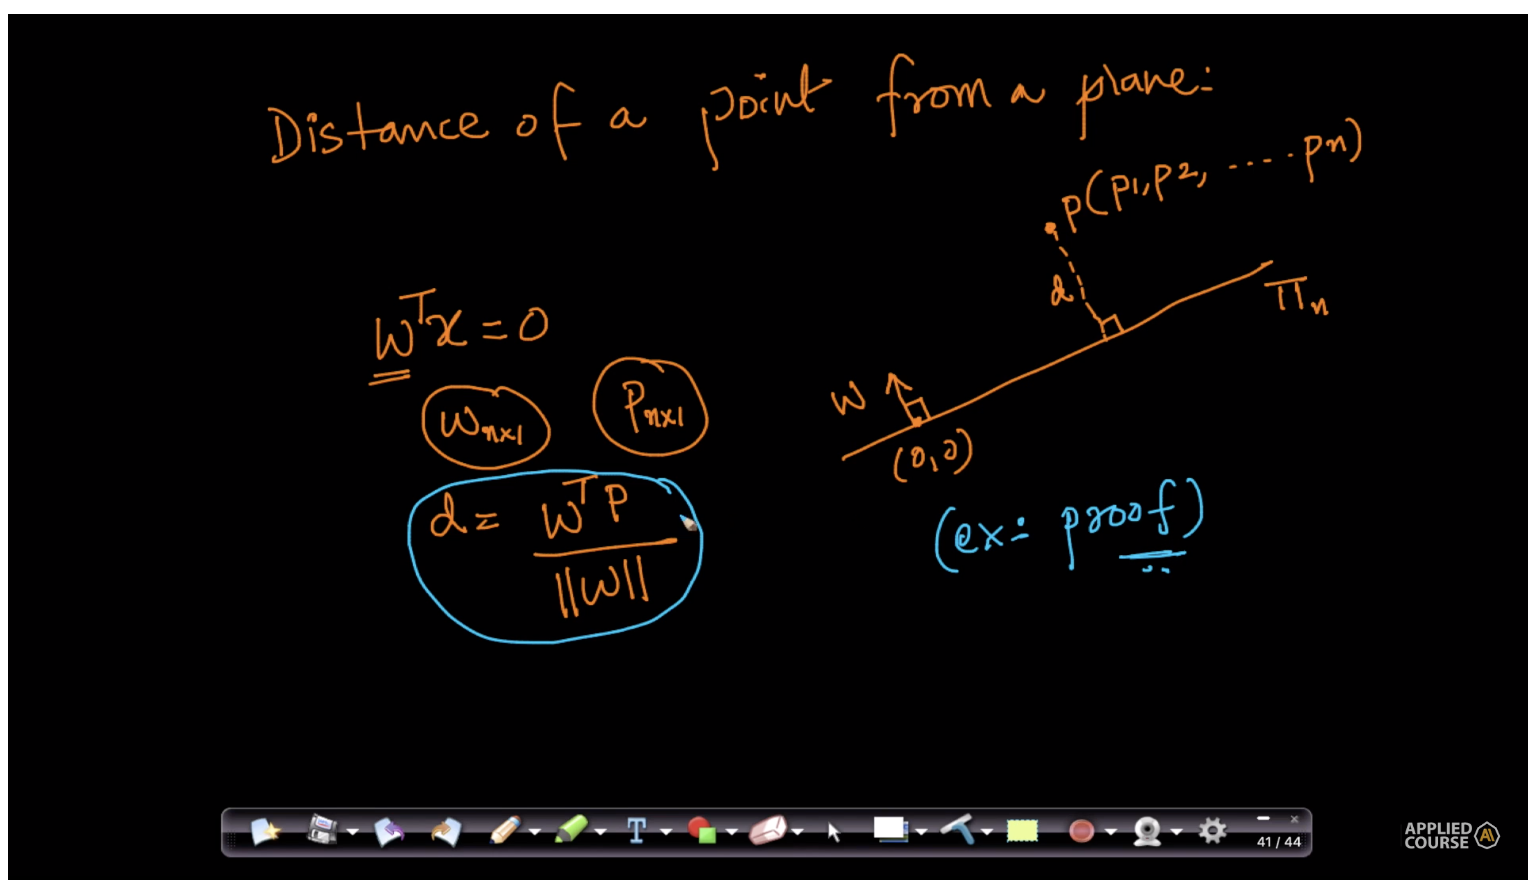 Distance of a point from a plane:
P(P1,P2, ..... Pn)
d
πn
WTx=0
Wnx1
Pnx1
W
(0,0)
d = WTP
||W||
(ex: proof)
T
41 / 44
APPLIED
COURSE